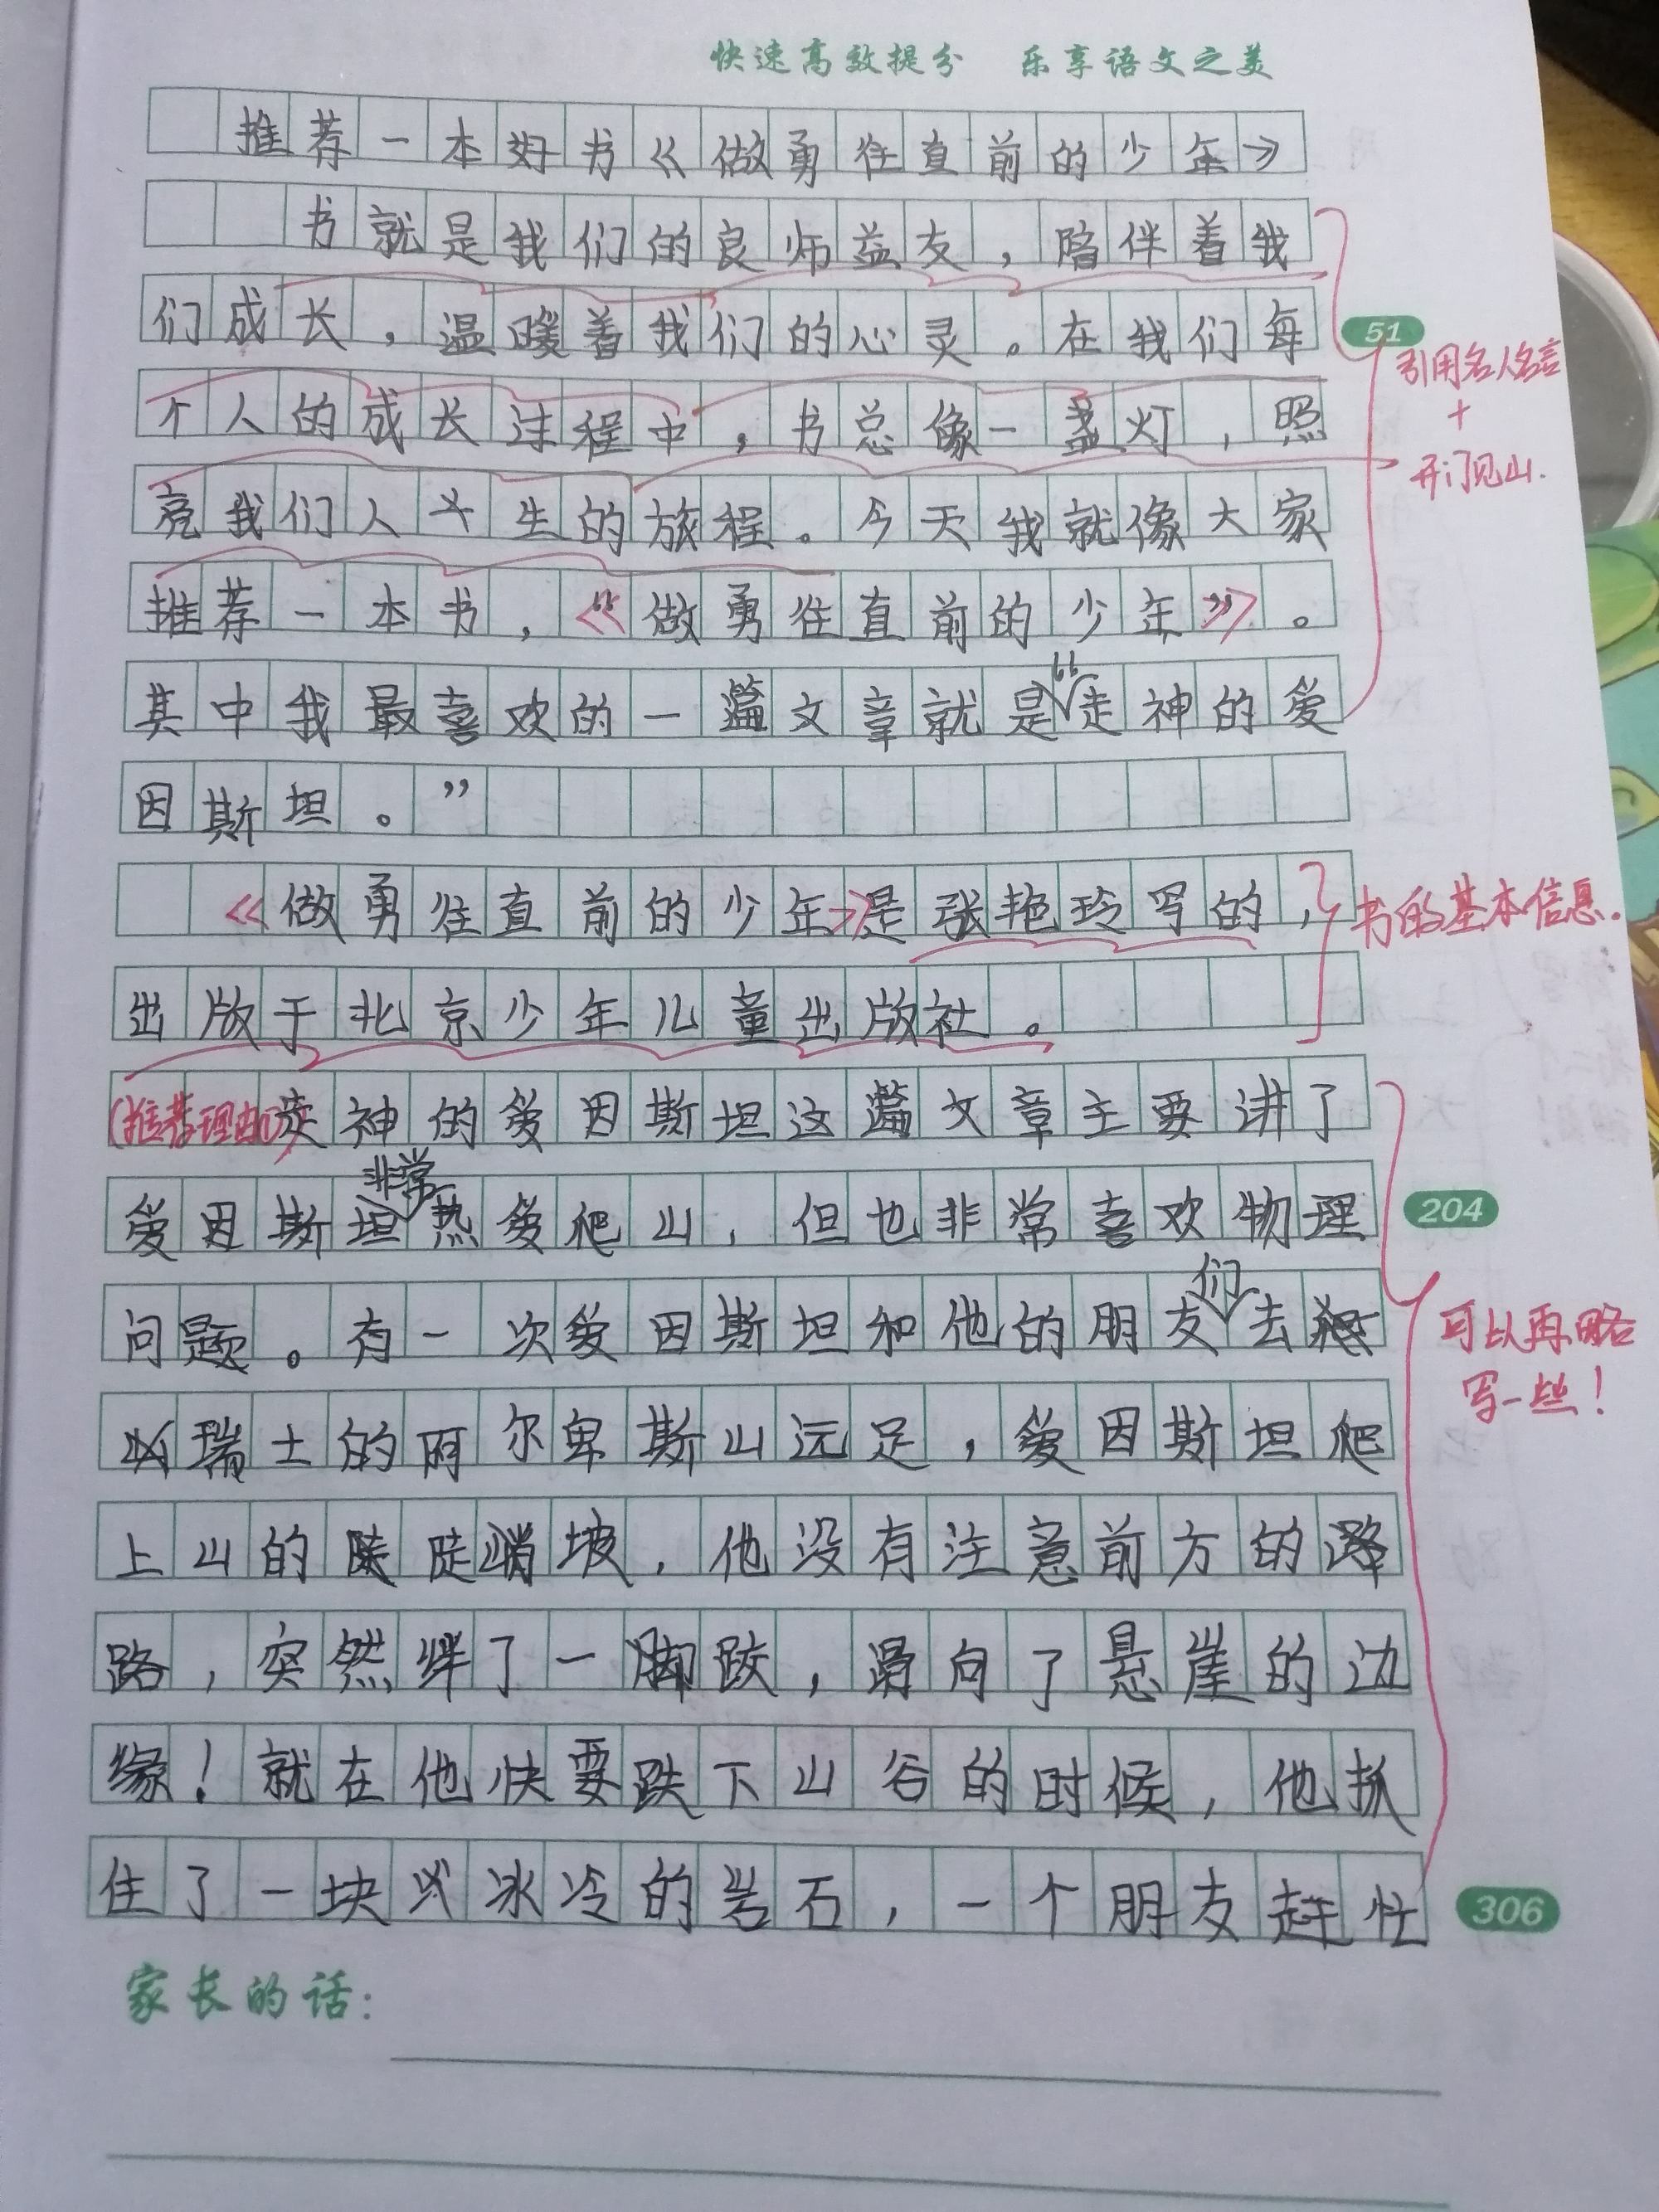 快速高效提分 乐享语文之美
推荐一本好书《做勇往直前的少年》
书就是我们的良师益友，陪伴着我
们成长，温暖着我们的心灵。在我们每
51
引用名人名言
+
开门见山.
个人的成长过程中，书总像一盏灯，照
亮我们人生的旅程。今天我就像大家
推荐一本书，《做勇往直前的少年》。
其中我最喜欢的一篇文章就是“走神的爱
因斯坦。”
《做勇往直前的少年》是张艳玲写的，
书的基本信息.
出版于北京少年儿童出版社。
(推荐理由)走神的爱因斯坦这篇文章主要讲了
爱因斯坦非常热爱爬山，但也非常喜欢物理
204
问题。有一次爱因斯坦和他的朋友们去
可以再略
写一些！
瑞士的阿尔卑斯山远足，爱因斯坦爬
上山的陡峭坡，他没有注意前方的
路，突然绊了一脚跤，滑向了悬崖的边
缘！就在他快要跌下山谷的时候，他抓
住了一块冰冷的岩石，一个朋友赶忙
306
家长的话：